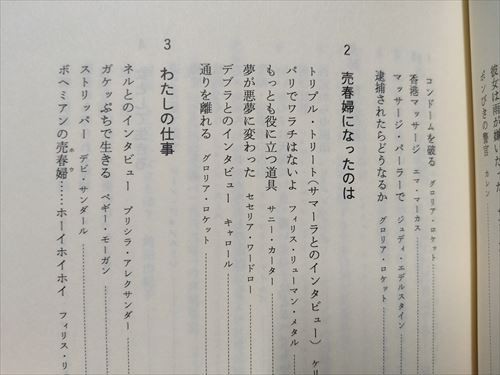 彼女は雨が嫌いだった
ポンびきの警官 カレン
コンドームを破る グロリア・ロケット
香港マッサージ エマ・マーカス
マッサージ・パーラーで ジュディ・エデルスタイン
逮捕されたらどうなるか グロリア・ロケット
2 売春婦になったのは
トリプル・トリート(サマーラとのインタビュー) ケリ
パリでワラチはないよ フィリス・リューマン・メタル
もっとも役に立つ道具 サニー・カーター
夢が悪夢に変わった セセリア・ワードロー
デブラとのインタビュー キャロール
通りを離れる グロリア・ロケット
3 わたしの仕事
ネルとのインタビュー プリシラ・アレクサンダー
ガケップちで生きる ペギー・モーガン
ストリッパー デビ・サンダール
ボヘミアンの売春婦……ホーイホイホイ フィリス・リュ